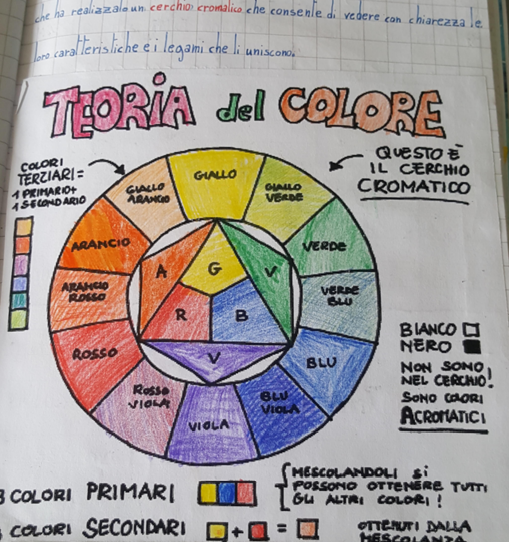 che ha realizzato un cerchio cromatico che consente di vedere con chiarezza le
loro caratteristiche e i legami che li uniscono.
TEORIA del COLORE
COLORI
TERZIARI =
1 PRIMARIO+
1 SECONDARIO
QUESTO È
IL CERCHIO
CROMATICO
GIALLO
GIALLO
VERDE
VERDE
VERDE
BLU
BLU
BLU
VIOLA
VIOLA
ROSSO
VIOLA
ROSSO
ARANCIO
ROSSO
ARANCIO
GIALLO
ARANCIO
A
G
V
R
B
V
BIANCO
NERO
NON SONO
NEL CERCHIO!
SONO COLORI
ACROMATICI
3 COLORI PRIMARI
MESCOLANDOLI SI
POSSONO OTTENERE TUTTI
GLI ALTRI COLORI!
COLORI SECONDARI + =
OTTENUTI DALLA
MESCOLANZA